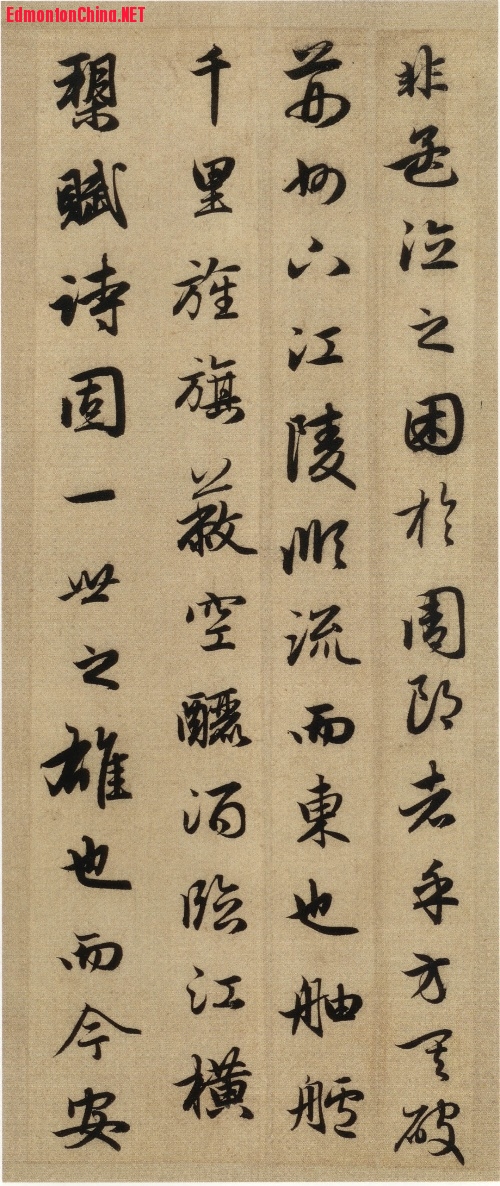 EdmontonChina.NET
非孟德之困於周郎者乎方其破
荊州下江陵順流而東也舳艫
千里旌旗蔽空釃酒臨江橫
槊賦詩固一世之雄也而今安